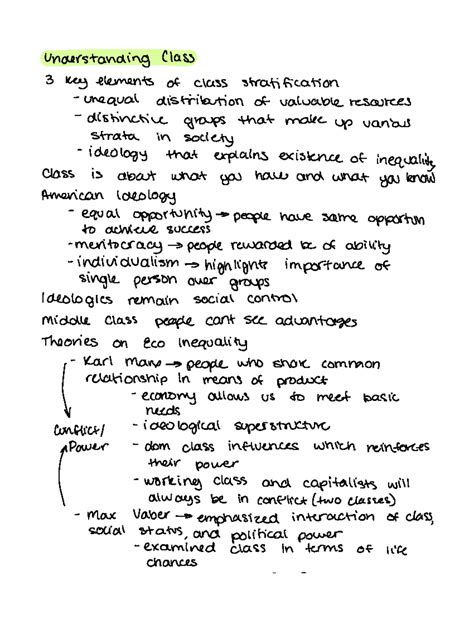 Understanding Class
3 key elements of class stratification
- unequal distribution of valuable resources
- distinctive groups that make up various
strata in society
- ideology that explains existence of inequality
Class is about what you have and what you know
American Ideology
- equal opportunity → people have same opportun
to achieve success
- meritocracy → people rewarded bc of ability
- individualism → highlights importance of
single person over groups
Ideologies remain social control
Middle Class people cant see advantages
Theories on Eco Inequality
- Karl Marx → people who share common
relationship in means of product
- economy allows us to meet basic
needs
- ideological superstructure
Conflict/
Power
- dom class influences which reinforces
their power
- working class and capitalists will
always be in conflict (two classes)
- Max Vaber → emphasized interaction of class,
social status, and political power
- examined class in terms of life
chances